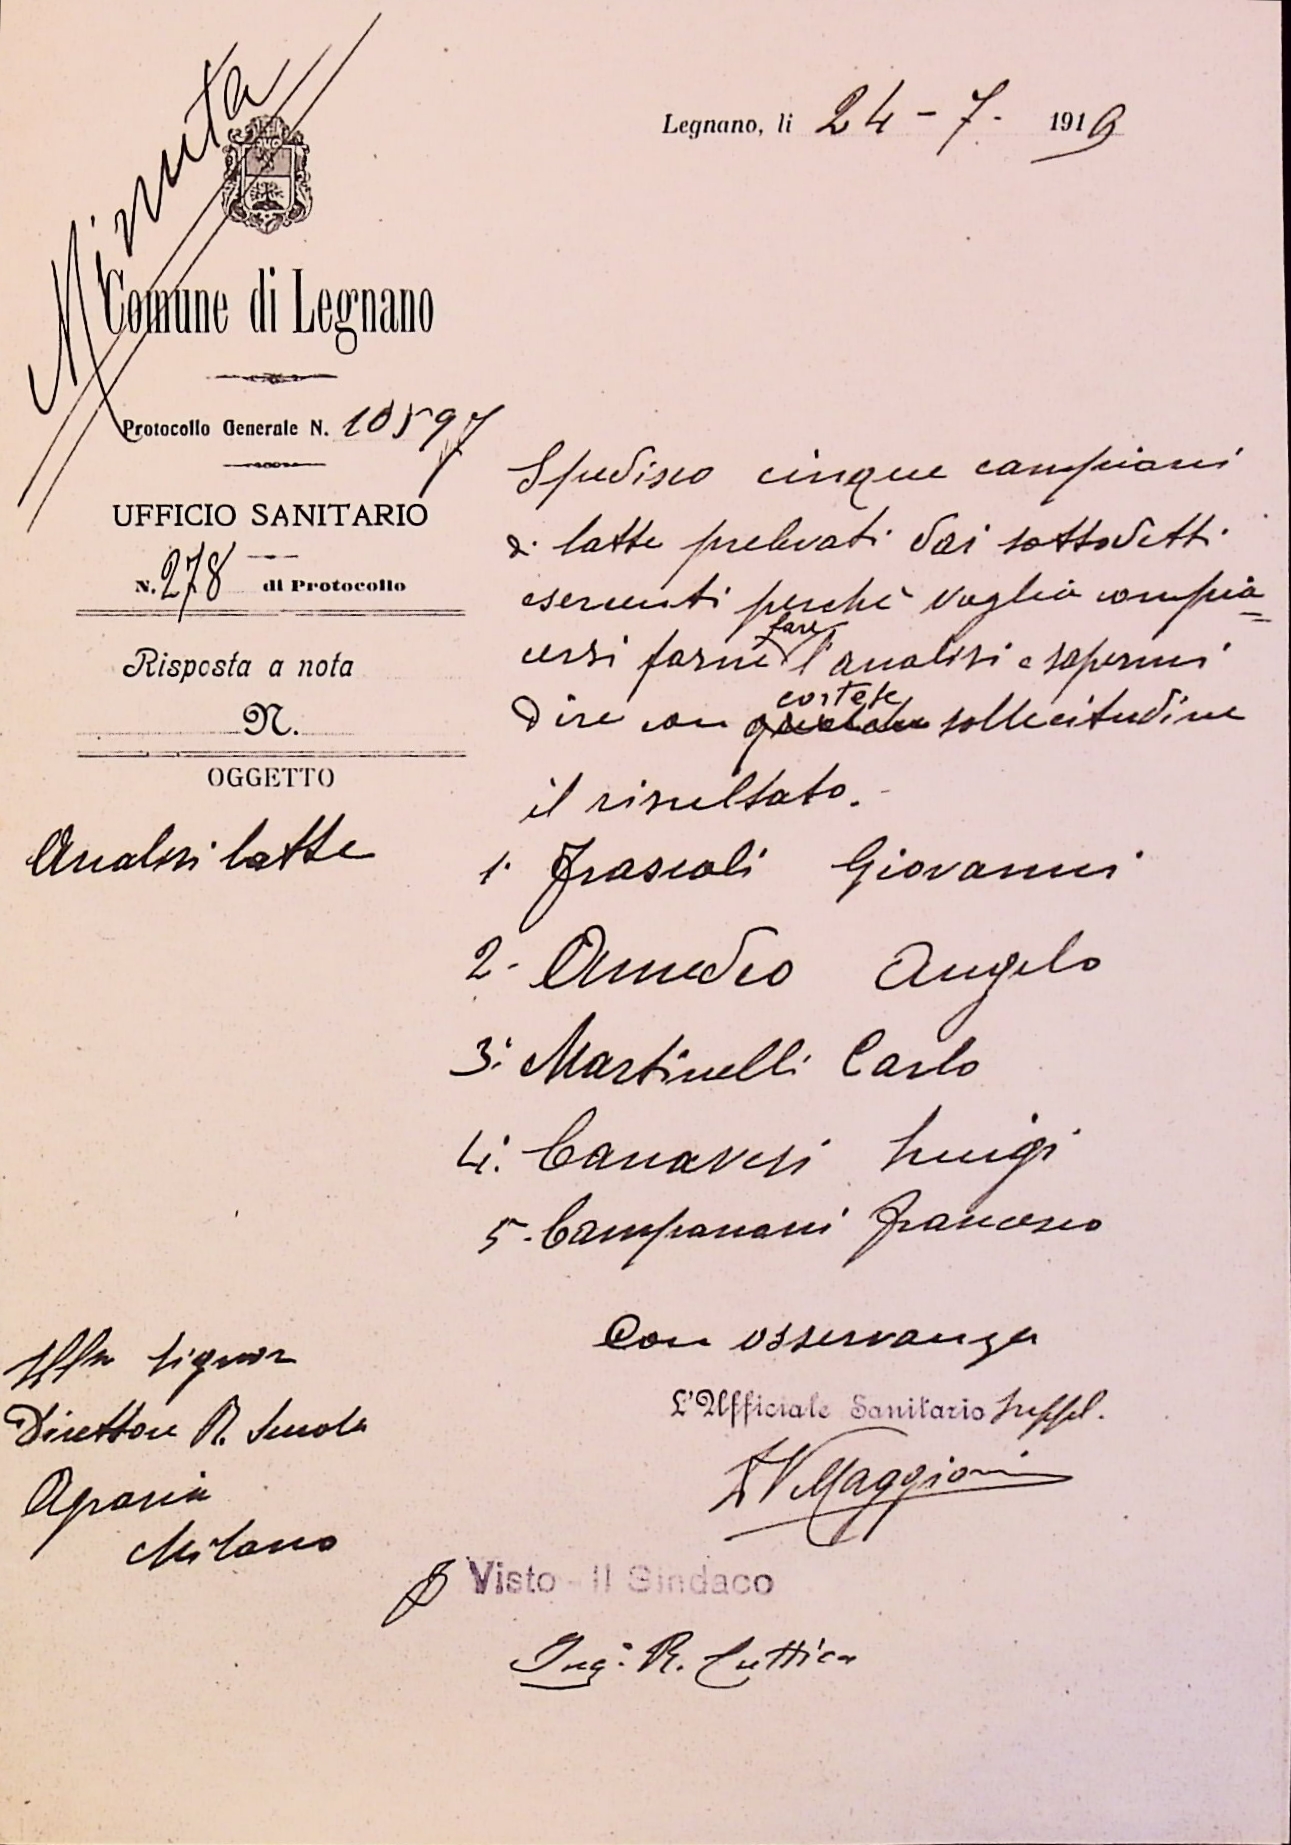 Minuta
Legnano, li 24 - 7. 1919
Comune di Legnano
Protocollo Generale N. 10597
UFFICIO SANITARIO
N. 278 di Protocollo
Risposta a nota
N.
OGGETTO
Analisi latte
Spedisco cinque campioni
di latte prelevati dai sottodetti
esercenti perchè voglia compia=
cersi farne fare l'analisi e sapermi
dire con cortese sollecitudine
il risultato.
1. Frascoli Giovanni
2. Amedeo Angelo
3. Martinelli Carlo
4. Canavesi Luigi
5. Campanani Francesco
Con osservanza
L'Ufficiale Sanitario Suppl.
Maggioni
Signor
Direttore R. Scuola
Agraria
Milano
Visto - Il Sindaco
Ing. R. Cuttica